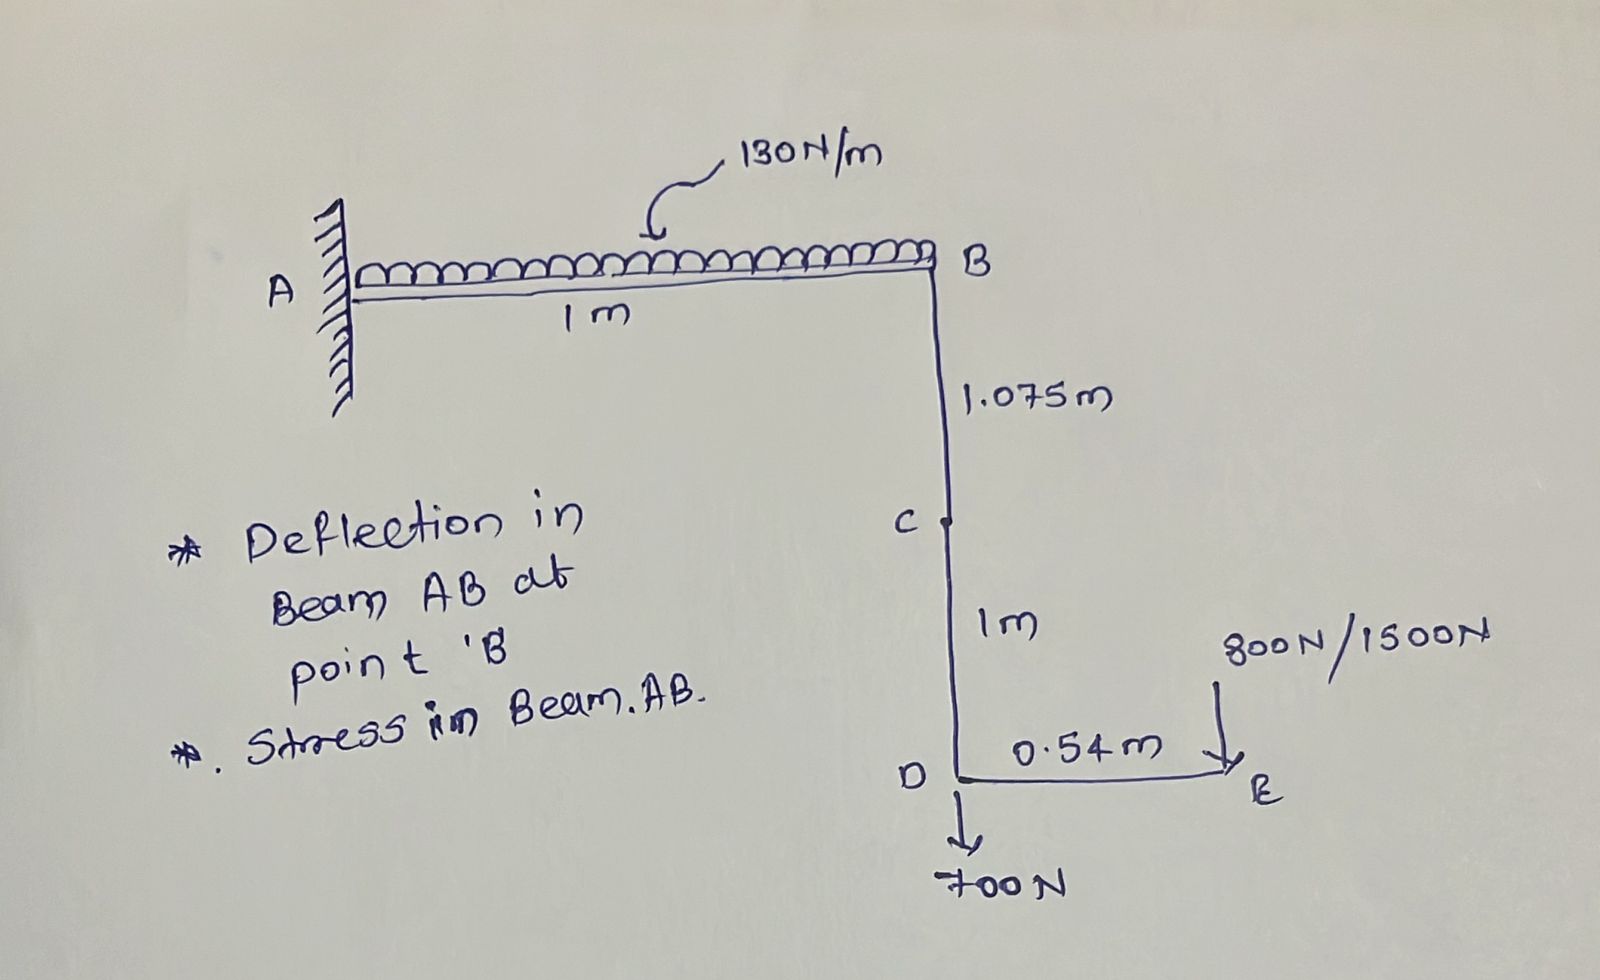 130N/m
A
B
1 m
1.075m
C
* Deflection in
Beam AB at
point 'B
*. Stress in Beam.AB.
1m
800N/1500N
0.54m
D
E
700N